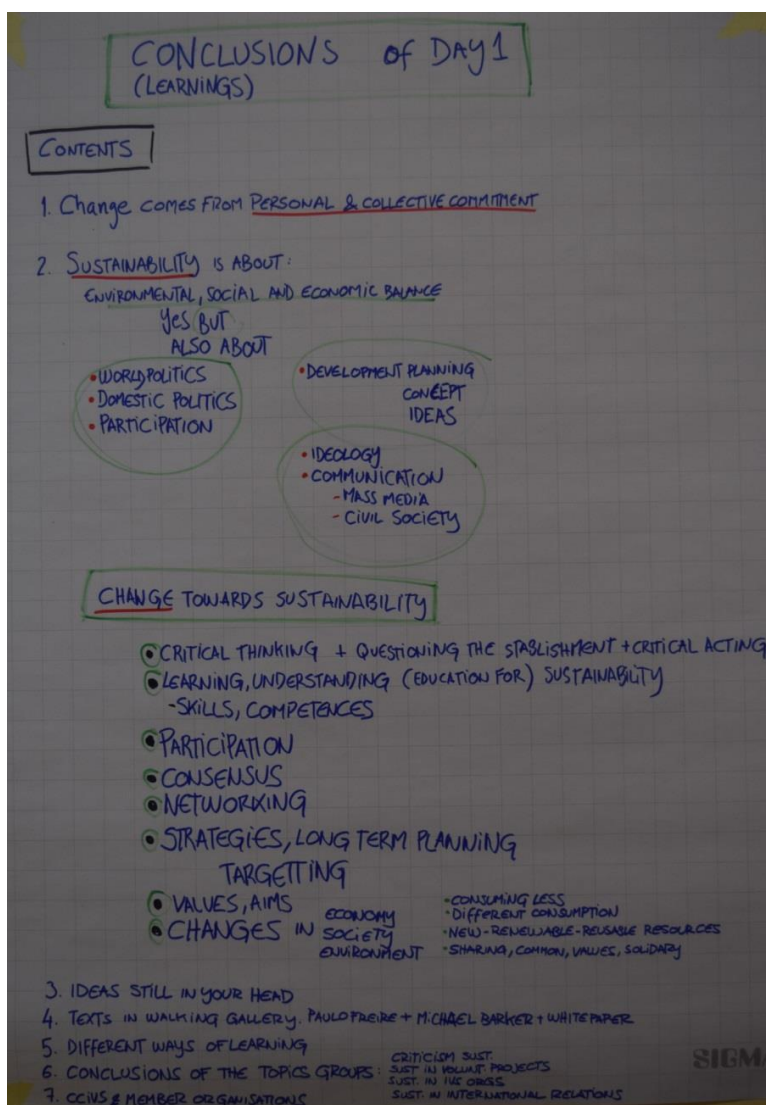 CONCLUSIONS of DAY 1
(LEARNINGS)
CONTENTS
1. Change COMES FROM PERSONAL & COLLECTIVE COMMITMENT
2. SUSTAINABILITY IS ABOUT:
ENVIRONMENTAL, SOCIAL AND ECONOMIC BALANCE
YES BUT
ALSO ABOUT
• WORLD POLITICS
• DOMESTIC POLITICS
• PARTICIPATION
• DEVELOPMENT PLANNING
CONCEPT
IDEAS
• IDEOLOGY
• COMMUNICATION
- MASS MEDIA
- CIVIL SOCIETY
CHANGE TOWARDS SUSTAINABILITY
• CRITICAL THINKING + QUESTIONING THE STABLISHMENT + CRITICAL ACTING
• LEARNING, UNDERSTANDING (EDUCATION FOR) SUSTAINABILITY
- SKILLS, COMPETENCES
• PARTICIPATION
• CONSENSUS
• NETWORKING
• STRATEGIES, LONG TERM PLANNING
TARGETTING
• VALUES, AIMS
• CHANGES IN
ECONOMY
SOCIETY
ENVIRONMENT
• CONSUMING LESS
• DIFFERENT CONSUMPTION
• NEW-RENEWABLE-REUSABLE RESOURCES
• SHARING, COMMON, VALUES, SOLIDARY
3. IDEAS STILL IN YOUR HEAD
4. TEXTS IN WALKING GALLERY. PAULO FREIRE + MICHAEL BARKER + WHITE PAPER
5. DIFFERENT WAYS OF LEARNING
6. CONCLUSIONS OF THE TOPICS GROUPS:
CRITICISM SUST.
SUST IN VOLUNT. PROJECTS
SUST. IN IVS ORGS
SUST. IN INTERNATIONAL RELATIONS
7. CCIVS & MEMBER ORGANISATIONS
SIGMA